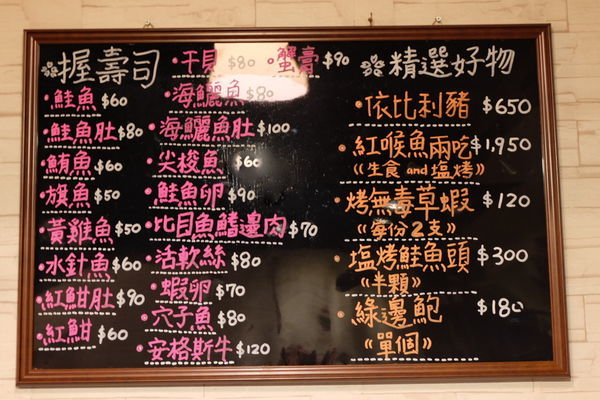 握壽司
鮭魚 $60
鮭魚肚 $80
鮪魚 $60
旗魚 $50
黃雞魚 $50
水針魚 $60
紅魽肚 $90
紅魽 $60
干貝 $80
蟹膏 $90
海鱺魚 $80
海鱺魚肚 $100
尖梭魚 $60
鮭魚卵 $90
比目魚鰭邊肉 $70
活軟絲 $80
蝦卵 $70
穴子魚 $80
安格斯牛 $120
精選好物
依比利豬 $650
紅喉魚兩吃 $1,950
《生食 and 塩烤》
烤無毒草蝦 $120
《每份2支》
塩烤鮭魚頭 $300
《半顆》
綠邊鮑 $180
《單個》